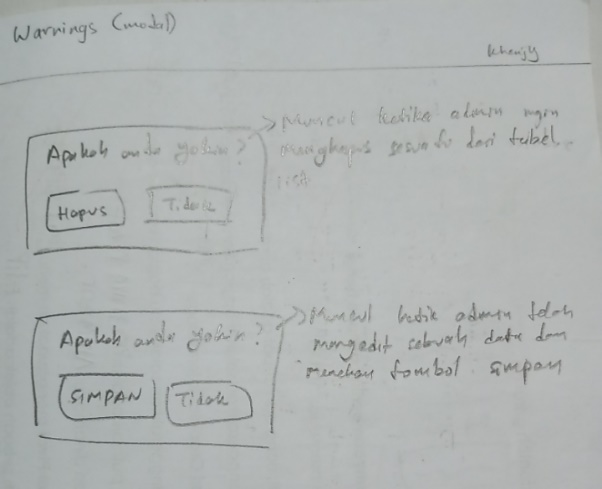 Warnings (modal)
Khanjy
Apakah anda yakin?
Hapus
Tidak
Muncul ketika admin ingin
menghapus sesuatu dari tabel
list
Apakah anda yakin?
SIMPAN
Tidak
Muncul ketik admin telah
mengedit sebuah data dan
menekan tombol simpan